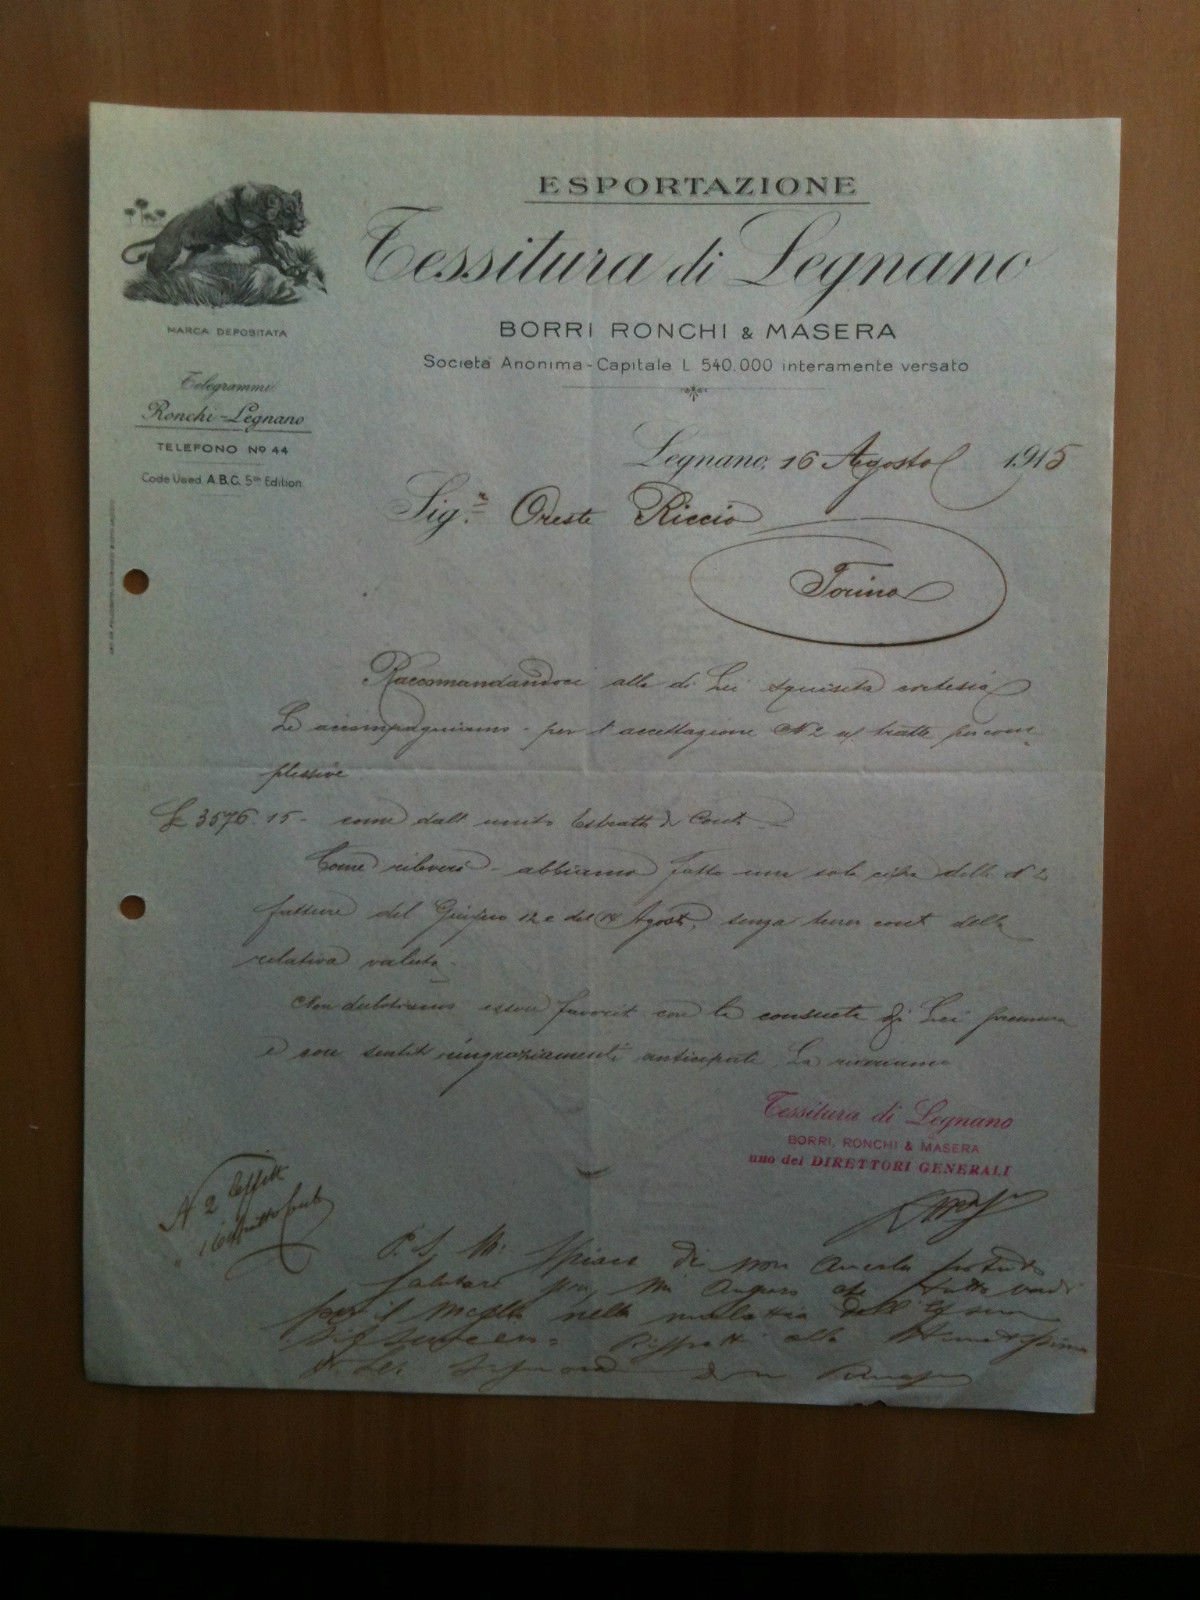 ESPORTAZIONE
Tessitura di Legnano
BORRI RONCHI & MASERA
Società Anonima - Capitale L. 540.000 interamente versato
MARCA DEPOSITATA
Telegrammi
Ronchi=Legnano
TELEFONO No 44
Code Used A.B.C. 5th Edition
Legnano, 16 Agosto 1915
Sig.r Oreste Riccio
Torino
Raccomandandoci alla di Lei squisita cortesia
Le accompagniamo - per l'accettazione N 2 tratte per com=
plessive
£ 3576.15 - come dall' unito Estratto di Conto
Come rileverà - abbiamo fatto una sola cifra delle N 2
fatture del Giugno 12 e del 14 Agosto, senza tener conto della
relativa valuta -
Non dubitiamo esser favoriti con la consueta di Lei premura
e con sentiti ringraziamenti anticipati, La riveriamo
Tessitura di Legnano
BORRI, RONCHI & MASERA
uno dei DIRETTORI GENERALI
N 2 Effetti
1 Estratto Conto
P. S. Mi spiace di non averla potuto
salutare mi auguro che tutto vada
per il meglio nella malattia dell'
Rispetti alla